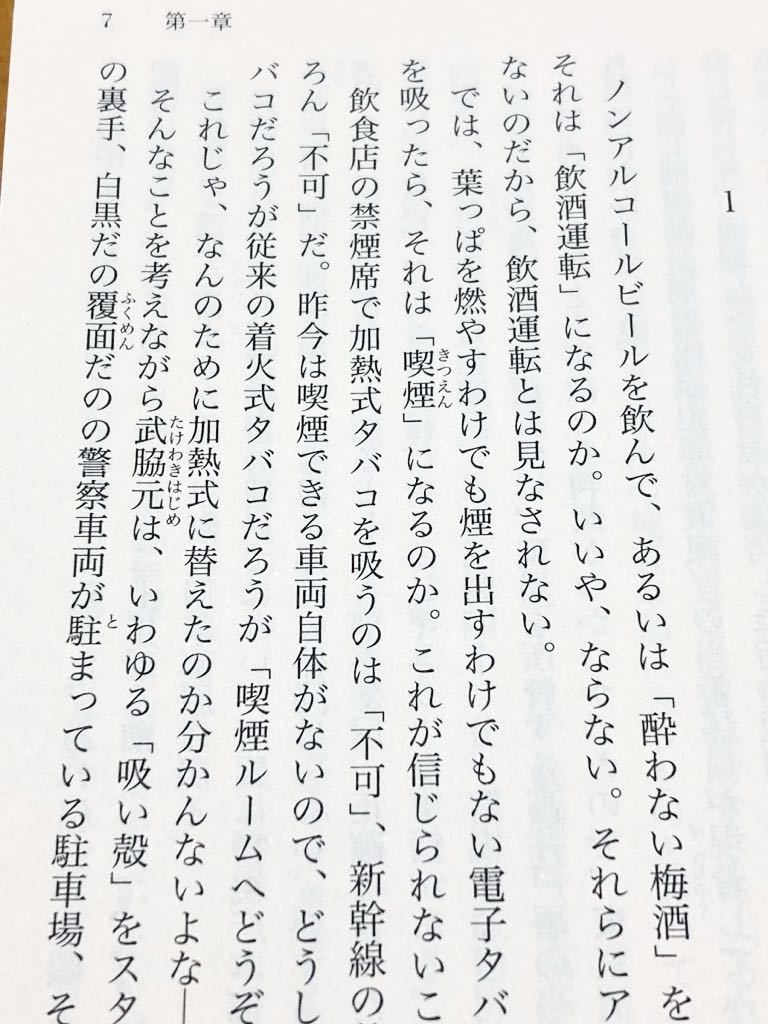 7 第一章
1
ノンアルコールビールを飲んで、あるいは「酔わない梅酒」を
それは「飲酒運転」になるのか。いいや、ならない。それらにア
ないのだから、飲酒運転とは見なされない。
では、葉っぱを燃やすわけでも煙を出すわけでもない電子タバ
を吸ったら、それは「喫煙」になるのか。これが信じられないこ
きつえん
飲食店の禁煙席で加熱式タバコを吸うのは「不可」、新幹線の
ろん「不可」だ。昨今は喫煙できる車両自体がないので、どうし
バコだろうが従来の着火式タバコだろうが「喫煙ルームへどうぞ
これじゃ、なんのために加熱式に替えたのか分かんないよな―
そんなことを考えながら武脇元は、いわゆる「吸い殻」をスタ
たけわきはじめ
の裏手、白黒だの覆面だのの警察車両が駐まっている駐車場、そ
ふくめん
と